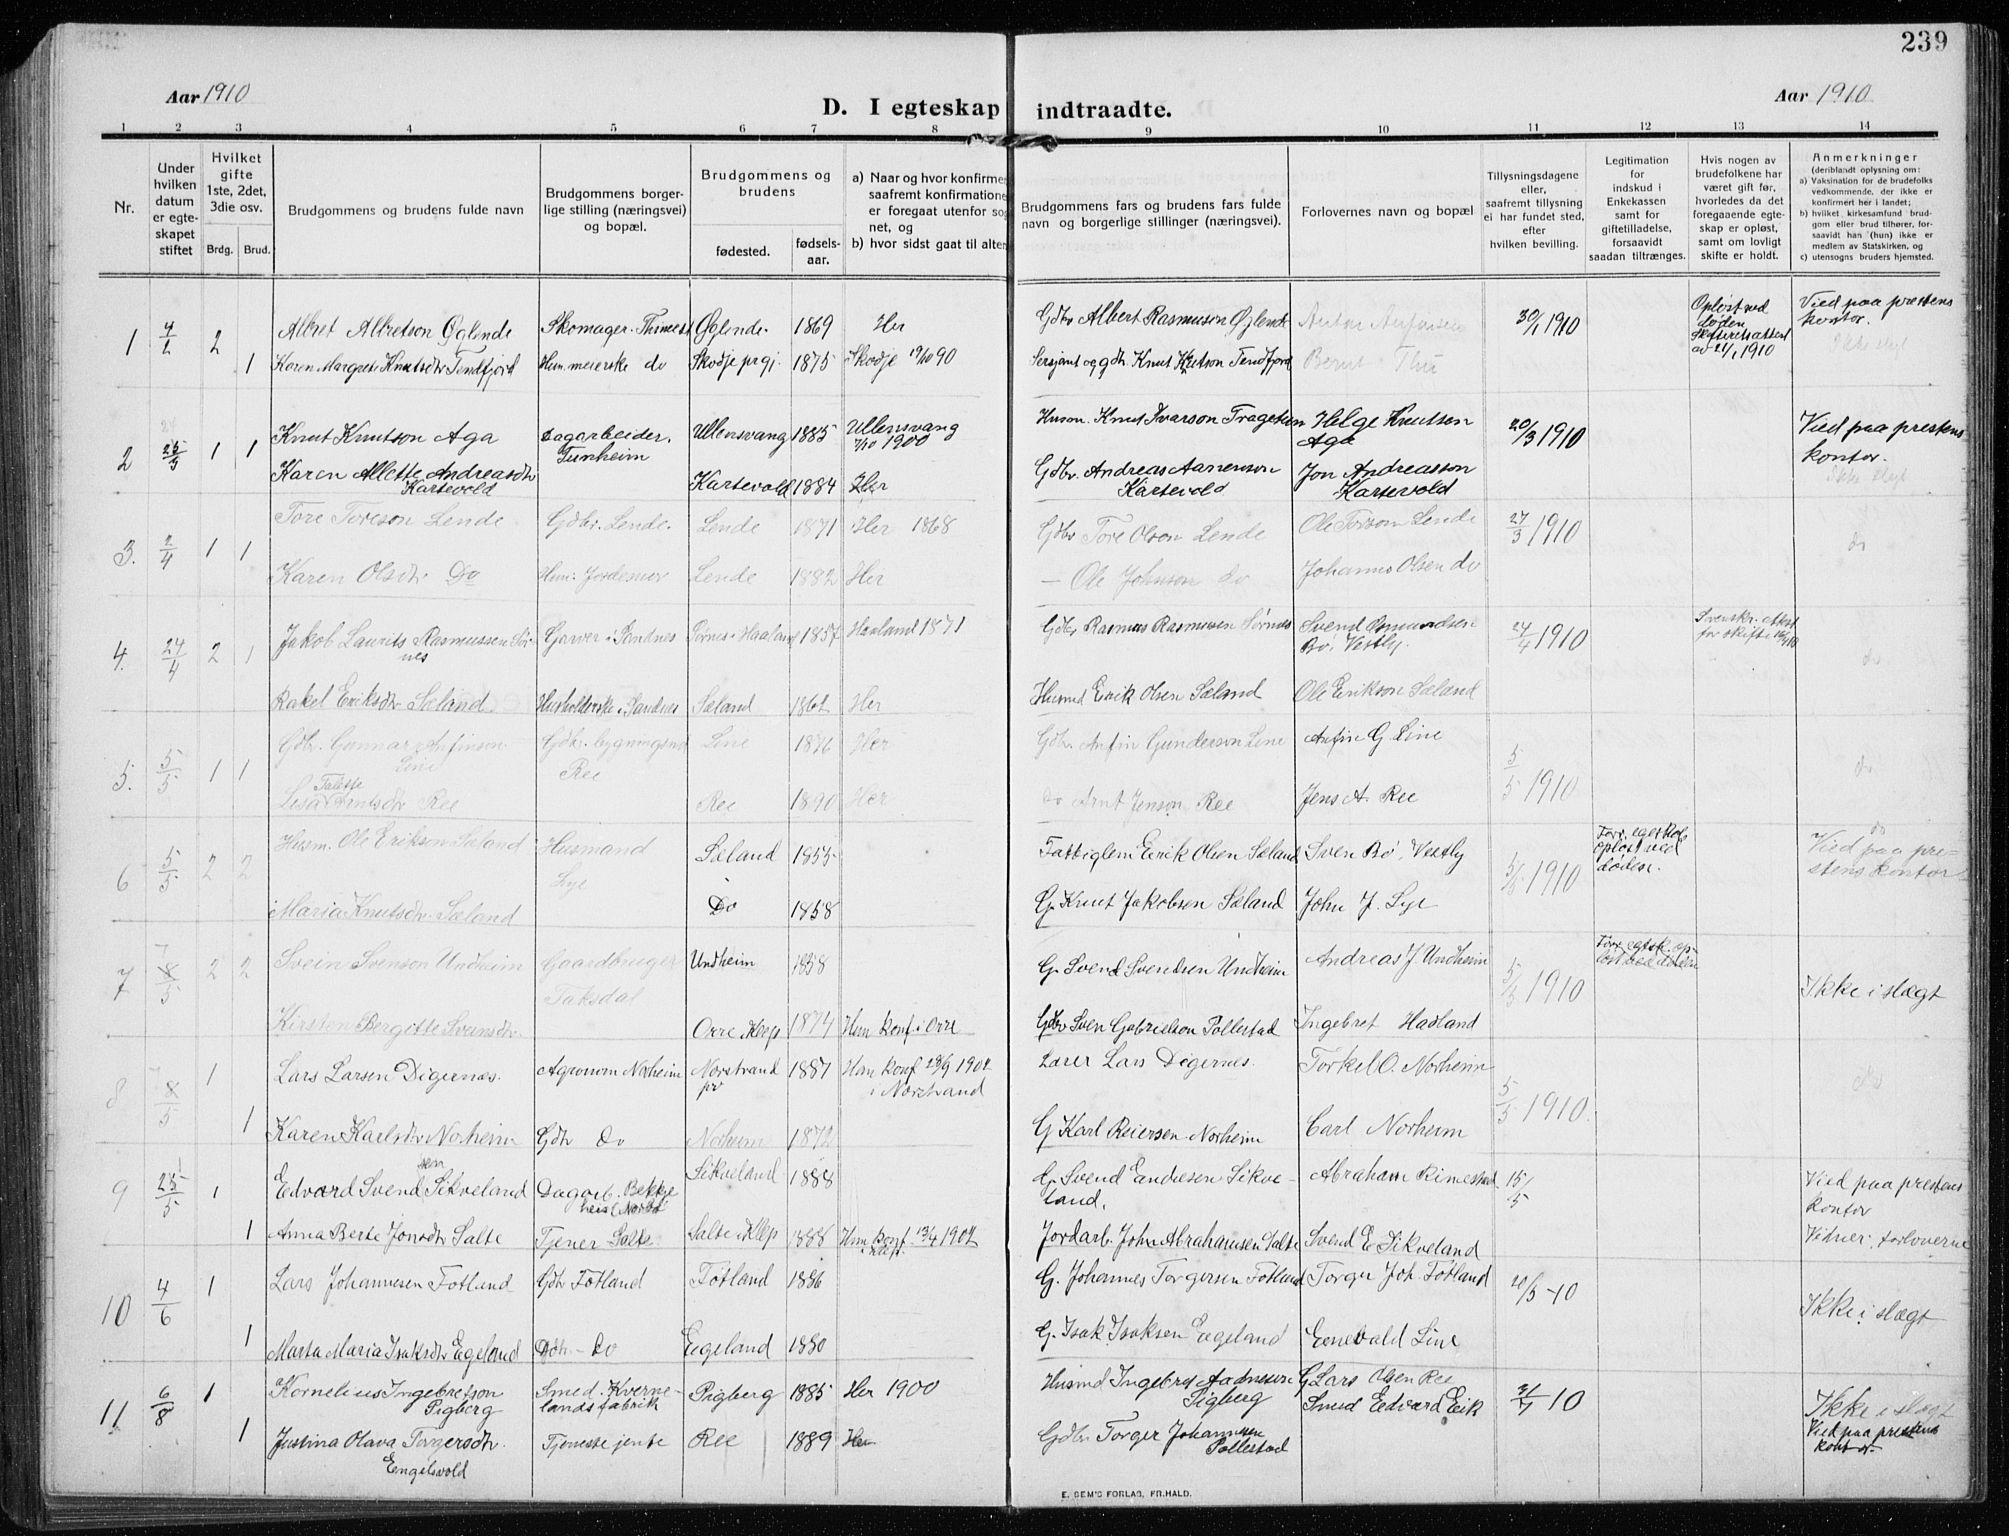 239
Aar 1910
D. I egteskap indtraadte.
Aar 1910
1 2 3 4 5 6 7 8 9 10 11 12 13 14
Nr.
Under hvilken datum er egteskapet stiftet
Hvilket gifte 1ste, 2det, 3die osv.
Brdg. Brud.
Brudgommens og brudens fulde navn
Brudgommens borgerlige stilling (næringsvei) og bopæl.
Brudgommens og brudens
fødested. fødselsaar.
a) Naar og hvor konfirme
saafremt konfirmatione
er foregaat utenfor so
net, og
b) hvor sidst gaat til alter
Brudgommens fars og brudens fars fulde navn og borgerlige stillinger (næringsvei).
Forlovernes navn og bopæl
Tillysningsdagene eller, saafremt tillysning ei har fundet sted, efter hvilken bevilling.
Legitimation for indskud i Enkekassen samt for giftetilladelse, forsaavidt saadan tiltrænges.
Hvis nogen av brudefolkene har været gift før, hvorledes da det foregaaende egteskap er opløst, samt om lovligt skifte er holdt.
Anmerkninger (deriblandt oplysning om: a) Vaksination for de brudefolks vedkommende, der ikke er konfirmert her i landet; b) hvilket kirkesamfund brudgom eller brud tilhører, forsaavidt han (hun) ikke er medlem av Statskirken, og c) utensogns bruders hjemsted.
1 4/2 2 Albret Albretson Øglende Skomager. Øglende. 1869 Her Gdbr Albert Rasmuson Øglende 30/1 1910 Opløst ved døden Vied paa prestens kontor.
1 Karen Margrete Knutsdtr Tendfjord Hun. meierske do Skodje prgj. 1875 Skodje 19/10 90 Sersjant og gdbr. Knut Knutson Tendfjord Bernt Thu
2 1 1 Knut Knutson Aga Dagarbeider. Tunheim Ullensvang 1885 Ullensvang 7/10 1900 Husm. Knut Ivarson Tragetun Helge Knutson Aga 20/3 1910 Vied paa prestens kontor.
Karen Allette Andreasdtr Kartevold Kartevold 1884 Her Gdbr. Andreas Aanenson Kartevold Jon Andreasson Kartevold
3. 2/4 1 1 Tore Toreson Lende Gdbr. Lende. Lende 1871 Her 1868 Gdbr Tore Olson Lende Ole Torson Lende 27/3 1910 do
Karen Olsdtr Do Lende 1882 Her - Ole Johnson do Johannes Olsen do
4. 24/4 2 1 Jakob Laurits Rasmussen Sørnes Garver i Sandnes Sørnes i Haaland 1857 Haaland 1871 Gdbr Rasmus Rasmussen Sørnes Svend Osmundsen Bø, Vestly. 24/4 1910 do
Rakel Eriksdtr Sæland Husholderske i Sandnes Sæland 1862 Her Husmd Erik Olsen Sæland Ole Erikson Sæland
5. 5/5 1 1 Gdbr. Gunnar Anfinson Line Line 1876 Her Gdbr. Anfin Gunderson Line Anfin G. Line 5/5 1910 do
Lisa Talette Arntsdtr Ree Ree Ree 1890 Her do Arnt Jenson Ree Jens A. Ree
6 5/5 2 2 Husm. Ole Erikson Sæland Husmand Lye Sæland 1855 Fattiglem Erik Olsen Sæland Sven Bø, Vestly 5/5 1910 Forr. egteskab opløst ved døden. do Vied paa prestens kontor
Maria Knutsdtr. Sæland Do 1858 G. Knut Jakobsen Sæland John J. Lye
7 7 8/5 2 2 Svein Svenson Undheim Gaardbruger Taksdal Undheim 1858 G. Svend Svendsen Undheim Andreas J. Undheim 5/5 1910 Ikke i slægt
Kirsten Bergitte Svensdtr. Orre Klep 1874 Hun konf. i Orre Gdbr Sven Gabrielson Pollestad Ingebret Hadland
8 7 8/5 1 Lars Larsen Digernes. Agronom Norheim Norstrand pr 1887 Han konf 28/9 1902 i Norstrand Lærer Lars Digernes. Torkel O. Norheim 5/5 1910 do
1 Karen Karlsdtr Norheim Gdtr do Norheim 1872 G. Karl Reiersen Norheim Carl Norheim
9 25/5 1 Edvard Svendsen Sikveland Dagarb. Sikveland 1888 G. Svend Endresen Sikveland. Abraham Rimestad 15/5 Vied paa prestens kontor
1 Anna Berte Jonsdtr Salte Tjener Salte Salte i Klep 1888 Hun konf. 13/4 1902 i Klep. Jordarb. John Abrahamsen Salte Svend E Sikveland Vidner: forloverne
10 4/6 1 Lars Johannesen Fotland Gdbr Fotland Fotland 1886 G. Johannes Torgersen Fotland Torger Joh. Fotland 20/5 -10 Ikke i slægt
1 Marta Maria Isaksdtr Egeland Gdtr - Do Egeland 1880 G. Isak Isaksen Egeland Enevald Line
11 6/8 1 Kornelius Ingebretson Pigberg Smed. Kvernelands fabrik Pigberg 1885 Her 1900 Husmd Ingebret Aadnesen Pigberg G Lars Olsen Ree Smed Edvard Eik 31/7 10 Ikke i slegt
1 Justina Olava Torgersdtr. Engelsvold Tjenestejente Ree 1889 Her Gdbr Torger Johannesen Pollestad Vied paa prestens kontor
E. SEM'S FORLAG, FR.HALD.